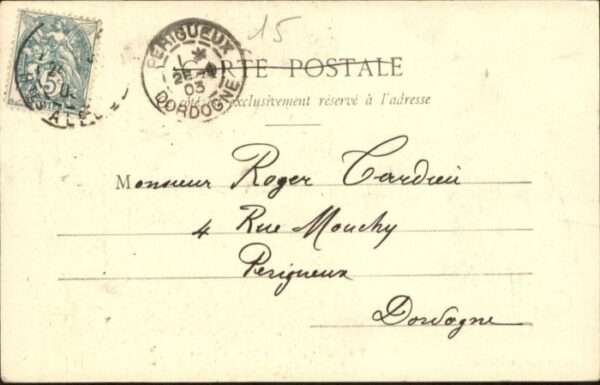 15
PERIGUEUX
03
DORDOGNE
5
CARTE POSTALE
côté exclusivement réservé à l'adresse
Monsieur Roger Cardieu
4 Rue Mouchy
Perigueux
Dordogne